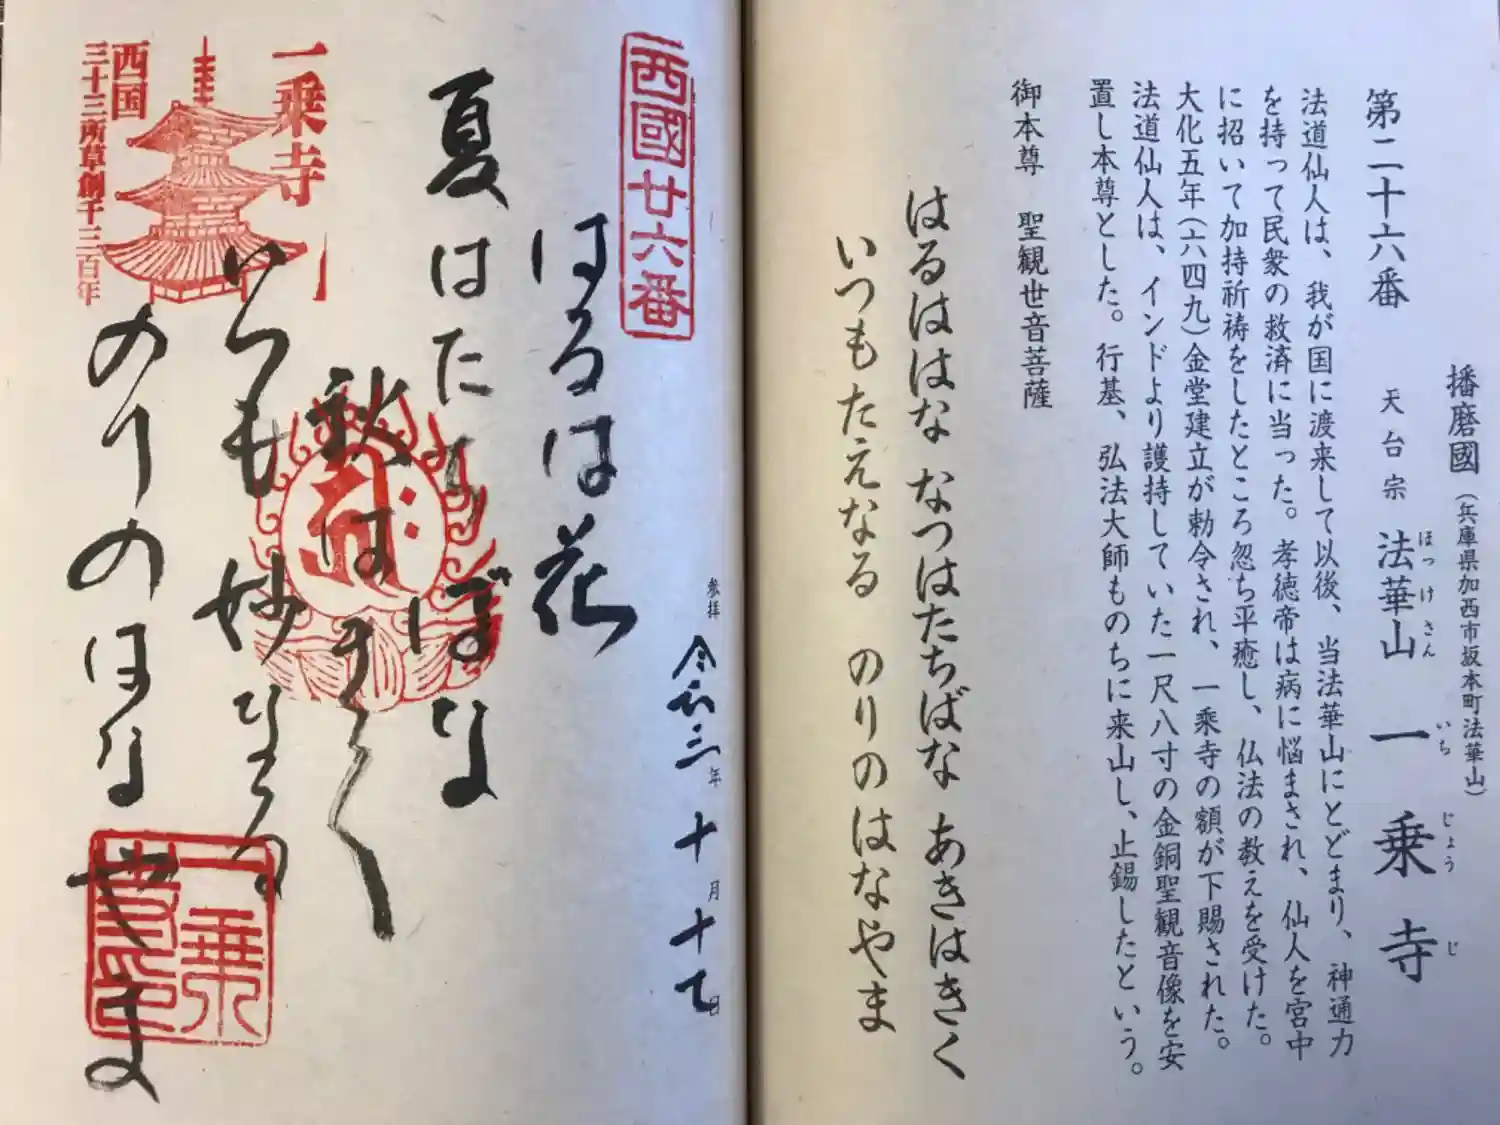 播磨國（兵庫県加西市坂本町法華山）
第二十六番 天台宗 法華山 一乗寺
ほっけさん いちじょうじ
法道仙人は、我が国に渡来して以後、当法華山にとどまり、神通力
を持って民衆の救済に当った。孝徳帝は病に悩まされ、仙人を宮中
に招いて加持祈祷をしたところ忽ち平癒し、仏法の教えを受けた。
大化五年（六四九）金堂建立が勅令され、一乗寺の額が下賜された。
法道仙人は、インドより護持していた一尺八寸の金銅聖観音像を安
置し本尊とした。行基、弘法大師ものちに来山し、止錫したという。
御本尊 聖観世音菩薩
はるははな なつはたちばな あきはきく
いつもたえなる のりのはなやま
参拝 令和三年十月十七日
西國廿六番
はるは花
夏はたちばな
秋はきく
いつも妙なる
のりのはなやま
一乗寺
西国
三十三所草創千三百年
一乗